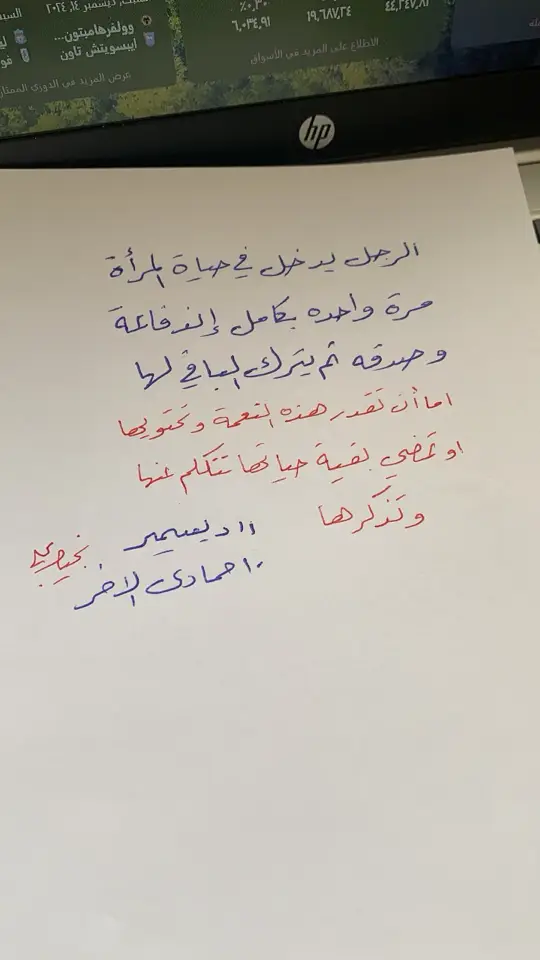 ديسمبر ١٤, ٢٠٢٤
وولفرهامبتون...
ايبسويتش تاون
عرض المزيد في الدوري الممتاز
٠٫٣٠%
٦,٠٣٤٫٩١
١٩,٦٨٧٫٢٤
٤٤,٢٤٧٫٨٣
الاطلاع على المزيد في الأسواق
hp
الرجل يدخل في حياة المرأة
مرة واحده بكامل إندفاعة
وصدقه ثم يترك الباقي لها
اما أن تقدر هذه النعمة وتحتويها
او تمضي بقية حياتها تتكلم عنها
وتذكرها
١١ ديسمبر
١٠ جمادى الاخر